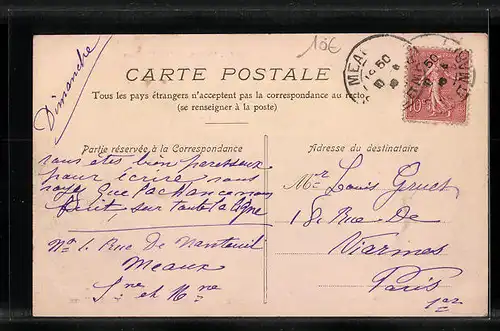 10€
Dimanche
CARTE POSTALE
Tous les pays étrangers n'acceptent pas la correspondance au recto
(se renseigner à la poste)
Partie réservée à la Correspondance
vous etes bien paresseux
pour écrire vous
voyez que
fait sur toute la ligne
No 1. Rue de Nanteuil
Meaux
Sne et Mne
Adresse du destinataire
Mr Louis Gruet
18 Rue De
Viarmes
Paris
1er
MEAUX
10